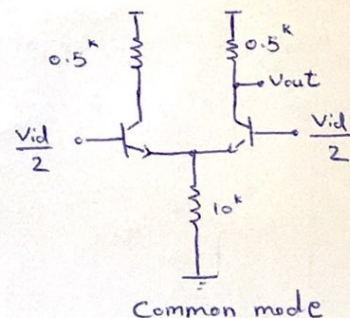 0.5k
0.5k
Vout
Vid
2
Vid
2
10k
Common mode